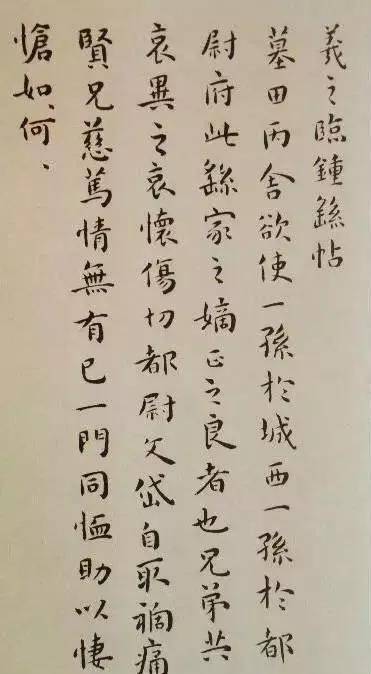 羲之臨鍾繇帖
墓田丙舍欲使一孫於城西一孫於都
尉府此繇家之嫡正之良者也兄弟共
哀異之哀懷傷切都尉文岱自取禍痛
賢兄慈篤情無有已一門同恤助以悽
愴如、何、